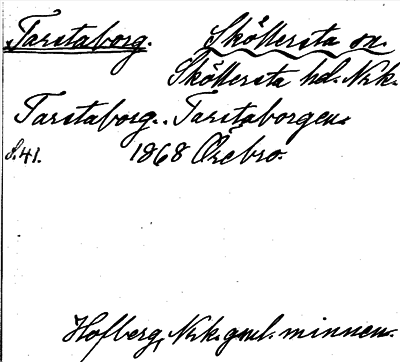 Tarstaborg. Sköllersta sn.
Sköllersta hd. Nrk.
Tarstaborg. Tarstaborgen.
S. 41. 1868 Örebro.
Hofberg, Nrk. gml. minnen.